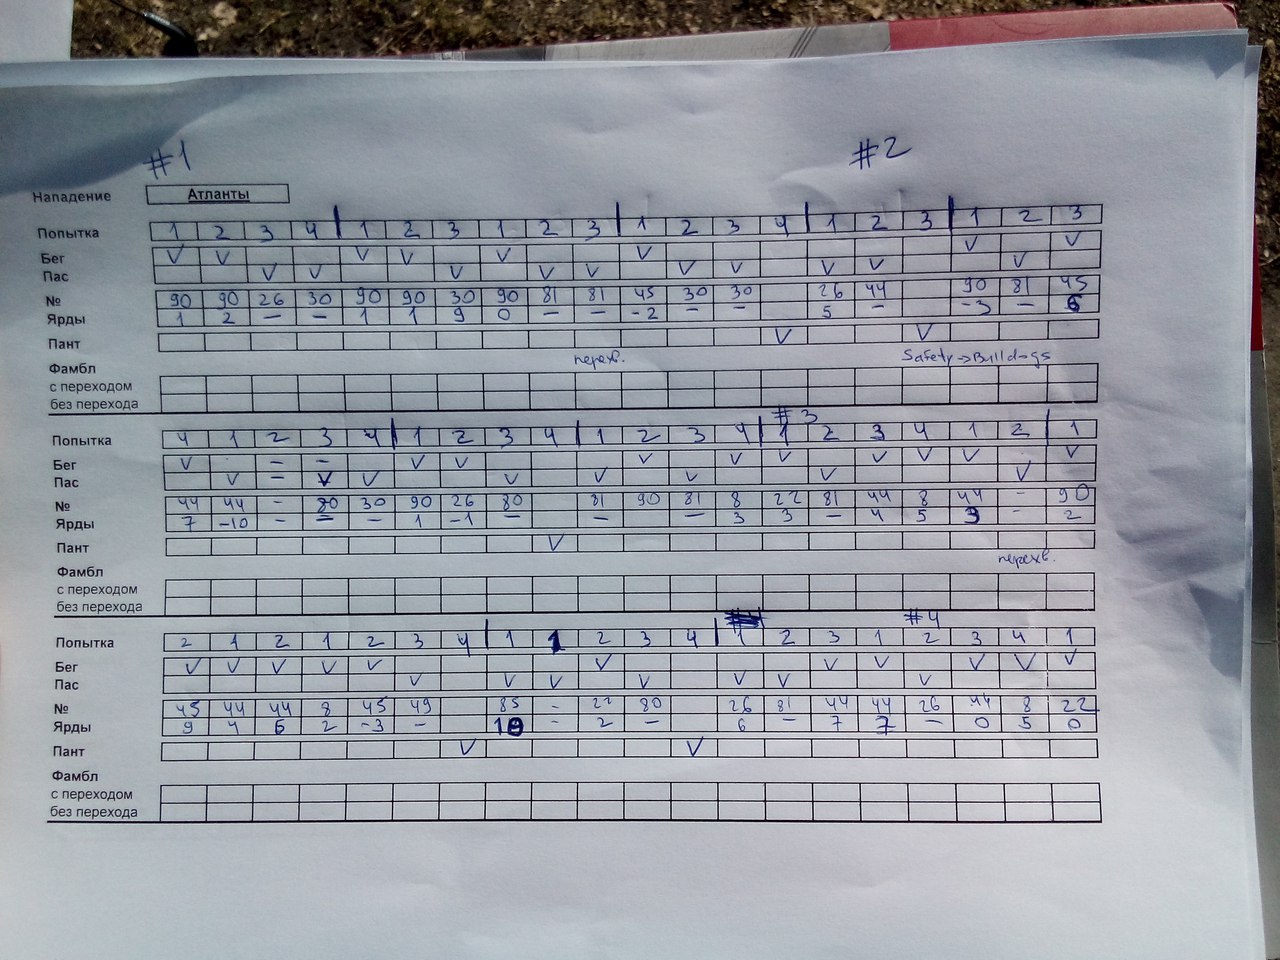 #1 #2
Нападение Атланты
Попытка 1 2 3 4 1 2 3 1 2 3 1 2 3 4 1 2 3 1 2 3
Бег V V V V V V V V
Пас V V V V V V V V V V
№ 90 90 26 30 90 90 30 90 81 81 45 30 30 26 44 90 81 45
Ярды 1 2 – – 1 1 9 0 – – -2 – – 5 – -3 – 6
Пант V V
перехв. Safety->Bulldogs
Фамбл
с переходом
без перехода
#3
Попытка 4 1 2 3 4 1 2 3 4 1 2 3 4 1 2 3 4 1 2 1
Бег V – – V V V V V V V V V
Пас V – V V V V V V V
№ 44 44 - 80 30 90 26 80 81 90 81 8 22 81 44 8 44 - 90
Ярды 7 -10 - – – 1 -1 – – – 3 3 – 4 5 3 - 2
Пант V
перехв.
Фамбл
с переходом
без перехода
#4
Попытка 2 1 2 1 2 3 4 1 1 2 3 4 1 2 3 1 2 3 4 1
Бег V V V V V V V V V V V
Пас V V V V V V V
№ 45 44 44 8 45 49 85 - 22 80 26 81 44 44 26 44 8 22
Ярды 9 4 6 2 -3 – 10 - 2 – 6 – 7 7 – 0 5 0
Пант V V
Фамбл
с переходом
без перехода